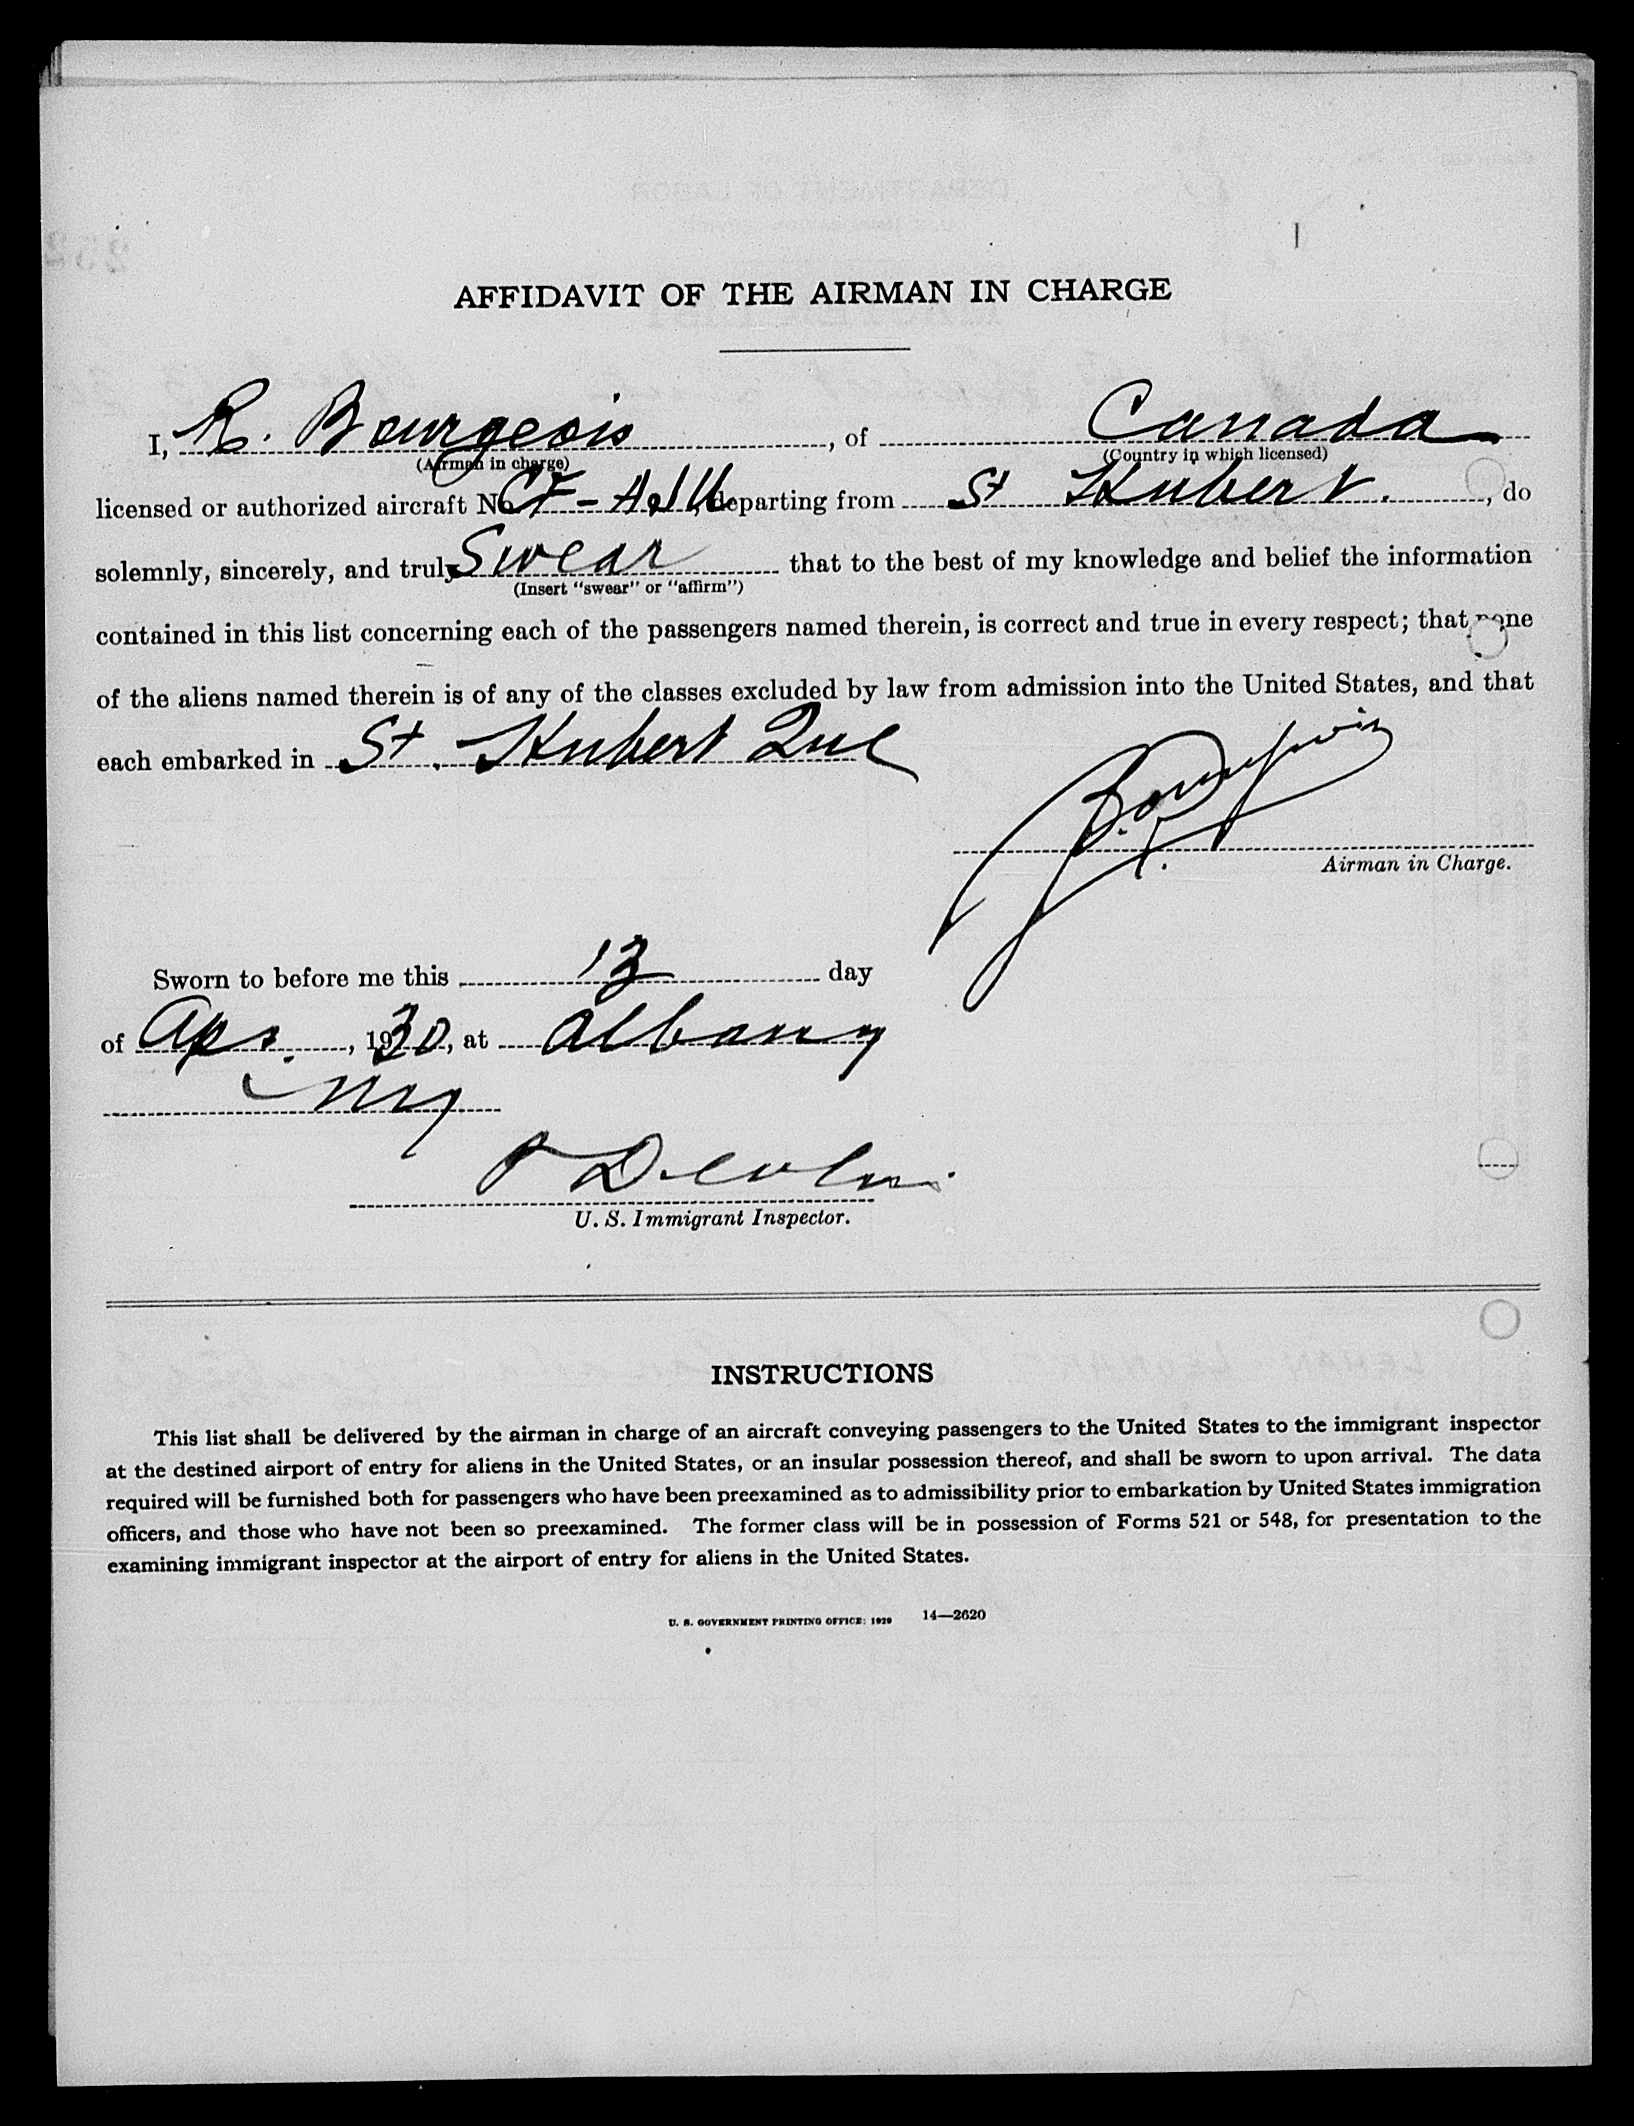 AFFIDAVIT OF THE AIRMAN IN CHARGE
I, R. Bourgeois, of Canada
(Airman in charge) (Country in which licensed)
licensed or authorized aircraft No. CF- departing from St Hubert., do
solemnly, sincerely, and truly Swear that to the best of my knowledge and belief the information
(Insert "swear" or "affirm")
contained in this list concerning each of the passengers named therein, is correct and true in every respect; that none
of the aliens named therein is of any of the classes excluded by law from admission into the United States, and that
each embarked in St. Hubert Que
Airman in Charge.
Sworn to before me this 13 day
of Apr., 1930, at Albany
NY
U. S. Immigrant Inspector.
INSTRUCTIONS
This list shall be delivered by the airman in charge of an aircraft conveying passengers to the United States to the immigrant inspector
at the destined airport of entry for aliens in the United States, or an insular possession thereof, and shall be sworn to upon arrival. The data
required will be furnished both for passengers who have been preexamined as to admissibility prior to embarkation by United States immigration
officers, and those who have not been so preexamined. The former class will be in possession of Forms 521 or 548, for presentation to the
examining immigrant inspector at the airport of entry for aliens in the United States.
U. S. GOVERNMENT PRINTING OFFICE: 1929 14—2620